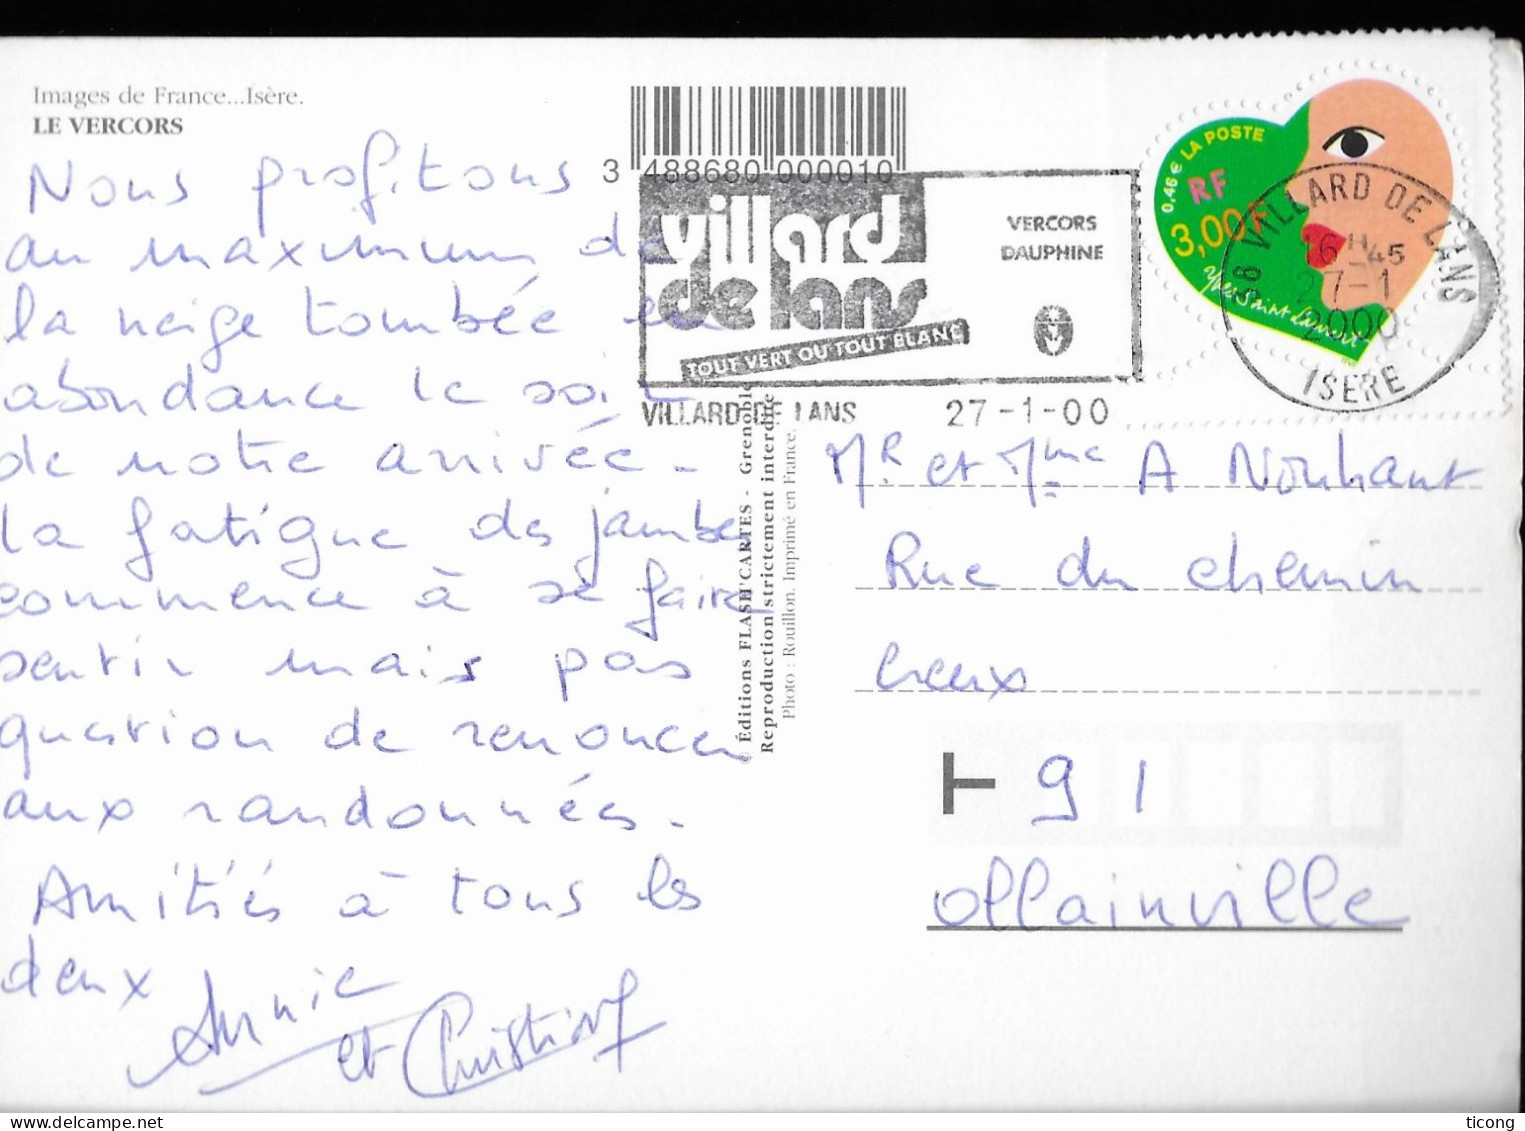 Images de France...Isère.
LE VERCORS
Nous profitons
au maximum de
la neige tombée en
abondance le soir
de notre arrivée.
la fatigue des jambes
commence à se faire
sentir mais pas
question de renoncer
aux randonnées.
Amitiés à tous les
deux
Annie
et Christian
3 488680 000010
villard
de lans
TOUT VERT OU TOUT BLANC
VERCORS
DAUPHINE
VILLARD DE LANS 27-1-00
0,46 € LA POSTE
RF
3,00 F
Yves Saint Laurent
38 VILLARD DE LANS
16 H 45
27-1
2000
ISERE
© Éditions FLASH'CARTES - Grenoble
Reproduction strictement interdite
Photo : Rouillon. Imprimé en France.
Mr et Mme A Nouhant
Rue du chemin
creux
T 91
Ollainville
ticong